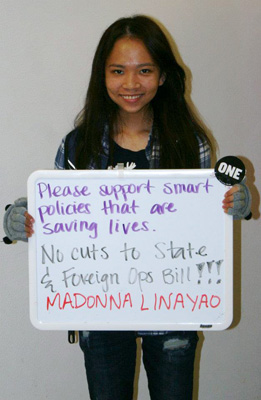 ONE
Please support smart
policies that are
saving lives.
No cuts to State
& Foreign Ops Bill!!!
MADONNA LINAYAO